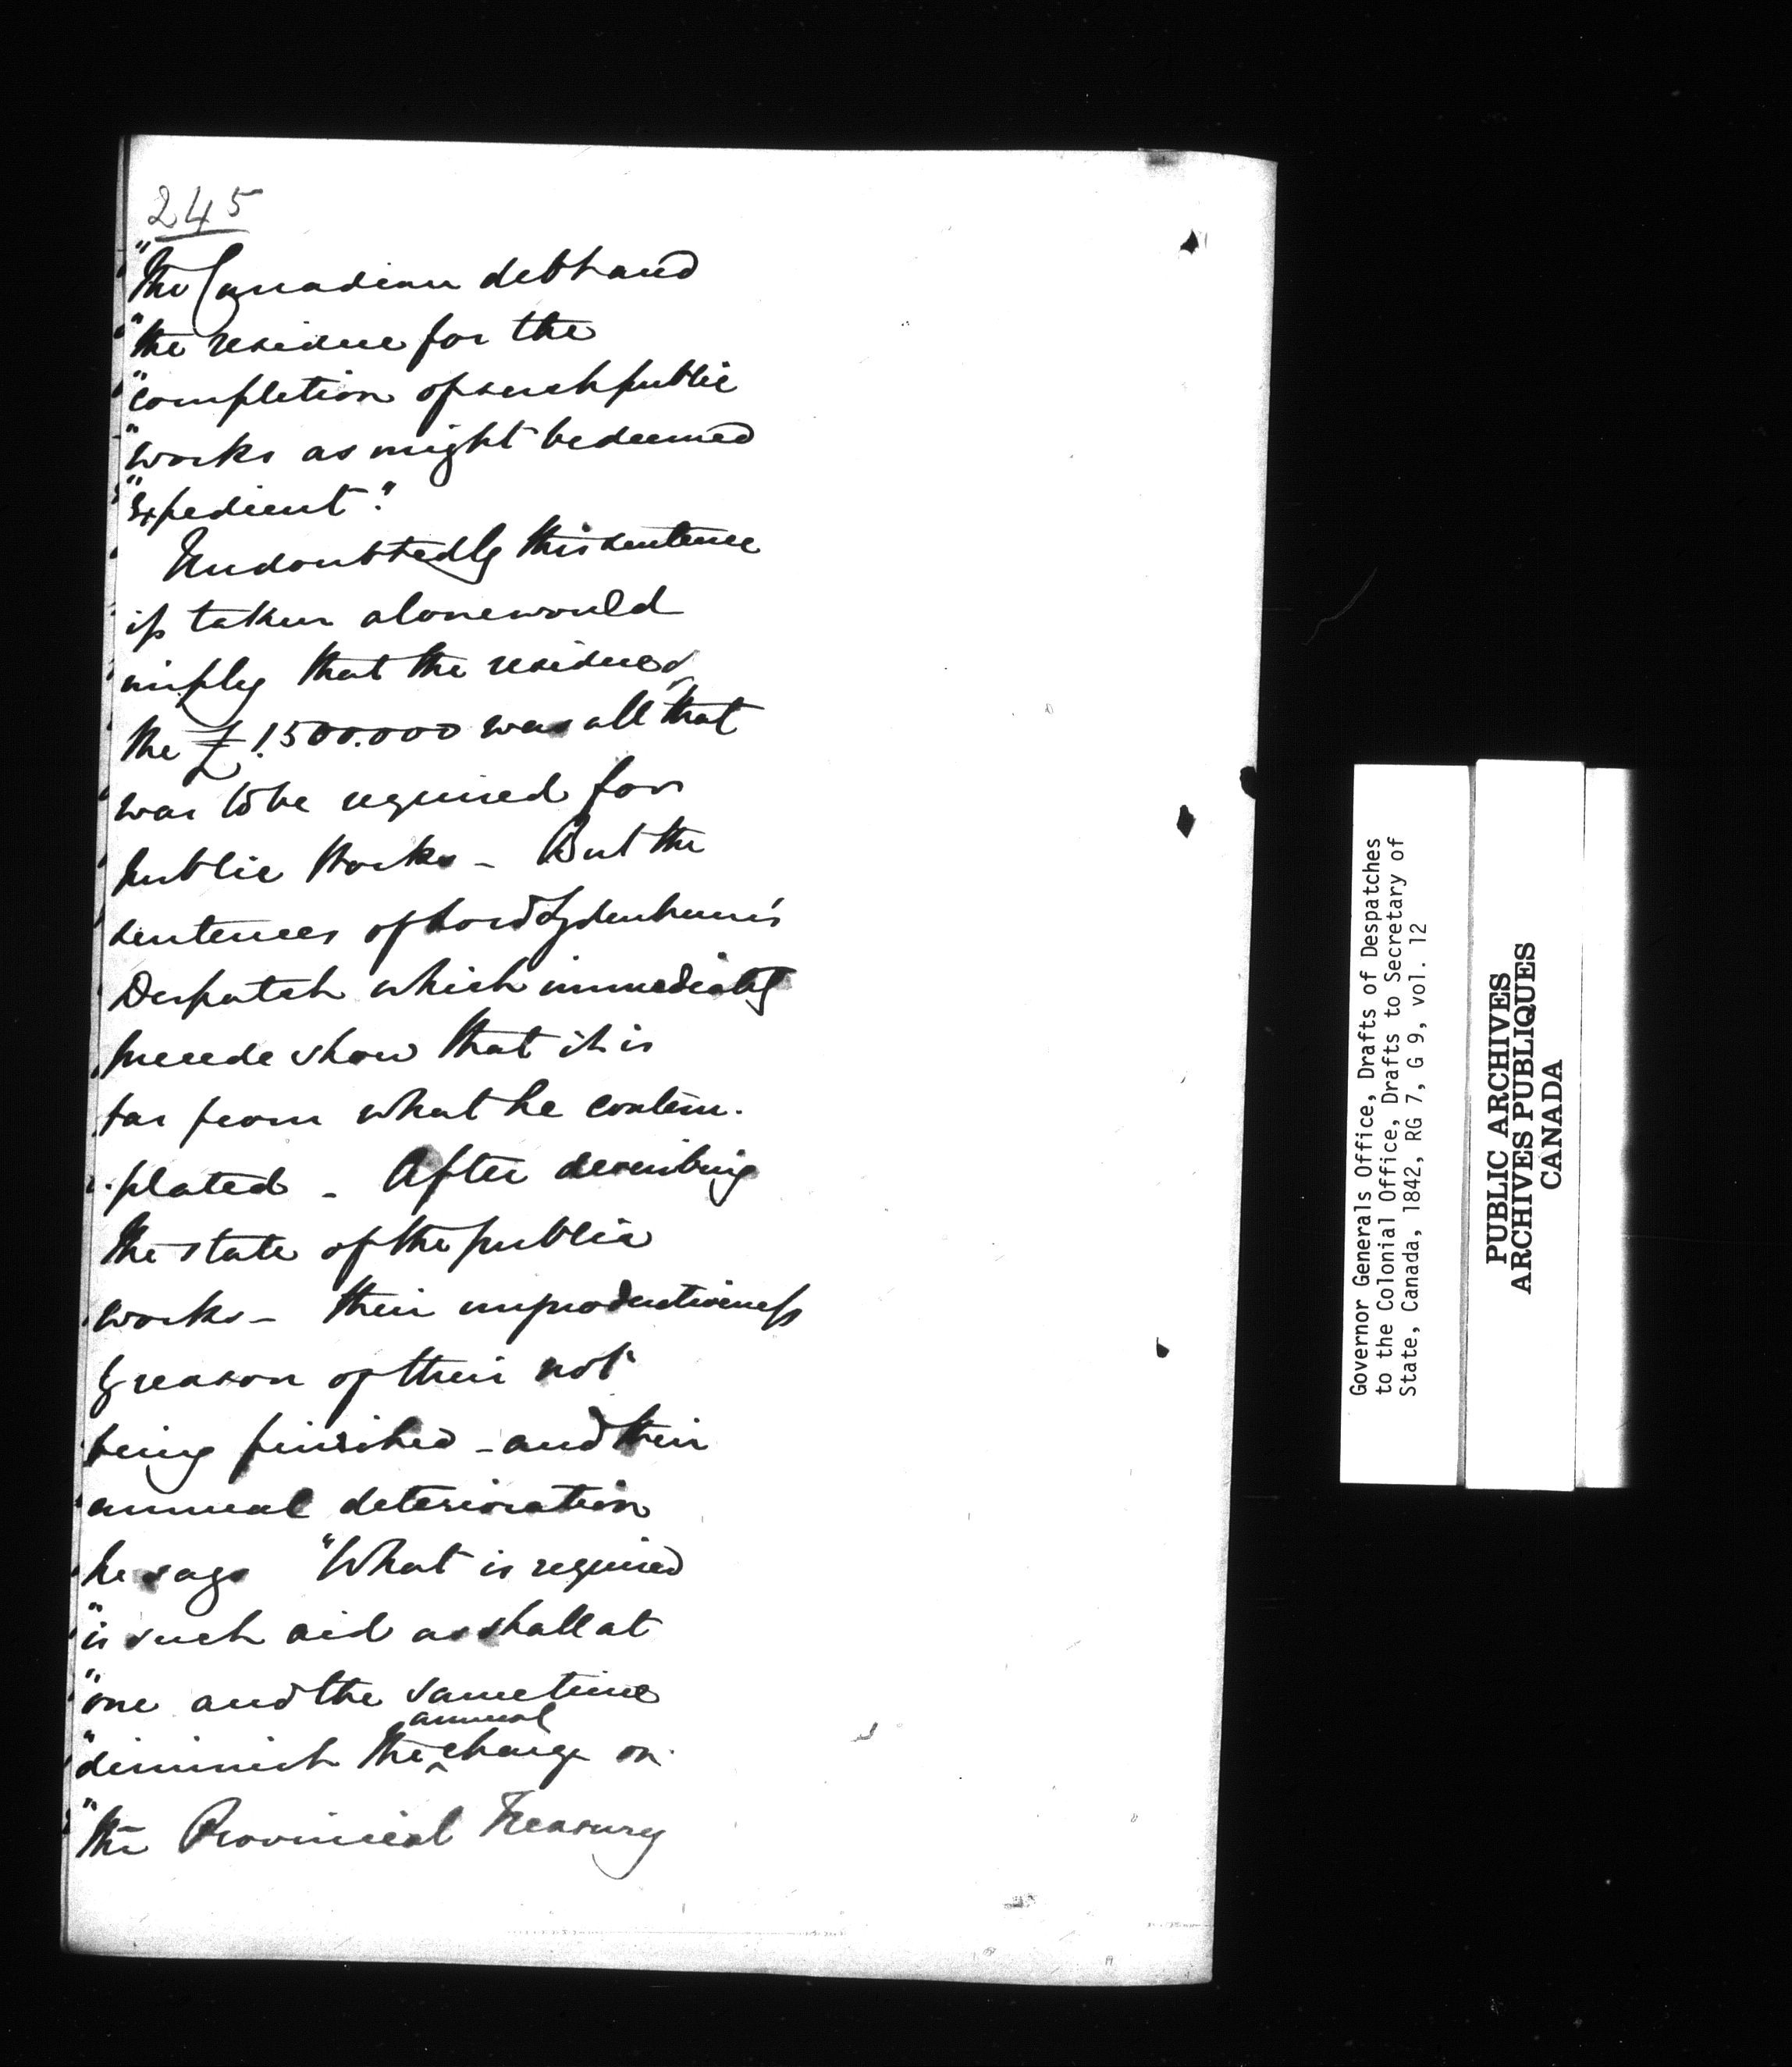 245
"The Canadian debt and
"the residue for the
"completion of such public
"works as might be deemed
"expedient."
Undoubtedly this sentence
if taken alone would
imply that the residue of
the £1.500.000 was all that
was to be required for
public Works – But the
sentences of Lord Sydenham's
Despatch which immediately
precede show that it is
far from what he contem-
-plated – After describing
the state of the public
works – their unproductiveness
by reason of their not
being finished – and their
annual deterioration
he says "What is required
"is such aid as shall at
"one and the same time
annual
"diminish the ^ charge on
"the Provincial Treasury
Governor Generals Office, Drafts of Despatches
to the Colonial Office, Drafts to Secretary of
State, Canada, 1842, RG 7, G 9, vol. 12
PUBLIC ARCHIVES
ARCHIVES PUBLIQUES
CANADA